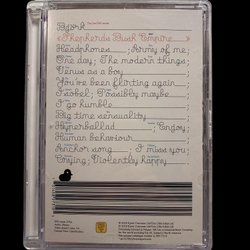 Björk
«Shepherds Bush Empire»
Headphones ; Army of me;
One day; The modern things;
Venus as a boy
You've been flirting again
Isobel; Possibly maybe
I go humble
Big time sensuality
Hyperballad ; Enjoy;
Human behaviour
Anchor song ; I miss you;
Crying; Violently happy